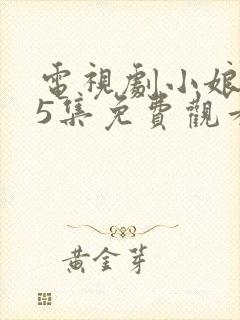 電視劇小娘
5集免費觀看
黃金芽